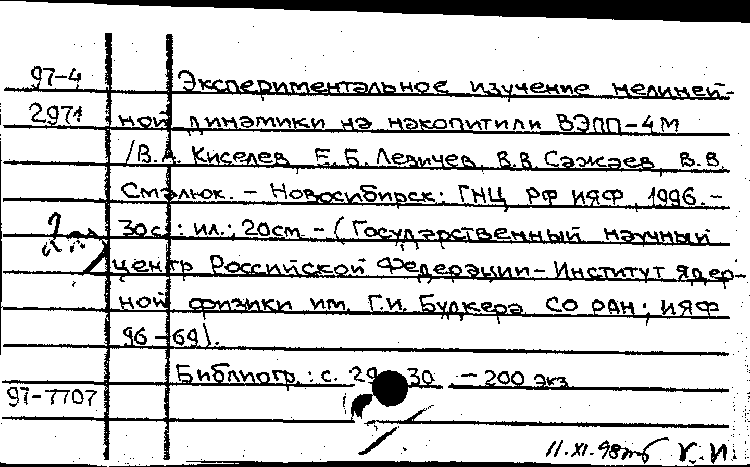 97-4 Экспериментальное изучение нелиней-
2971 ной динамики на накопители ВЭПП-4М
/В.А. Киселев, Е.Б. Левичев, В.В. Сажаев, В.В.
Смалюк. - Новосибирск: ГНЦ РФ ИЯФ, 1996. -
30с.: ил.; 20см - (Государственный научный
центр Российской Федерации - Институт ядер-
ной физики им. Г.И. Будкера СО РАН; ИЯФ
96-69).
Библиогр.: с. 29 30 - 200 экз
97-7707
11.XI.98